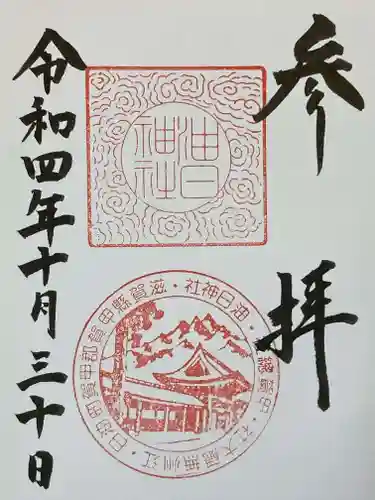 参拝
油日神社
油日神社・滋賀縣甲賀郡甲賀町油日
令和四年十月三十日